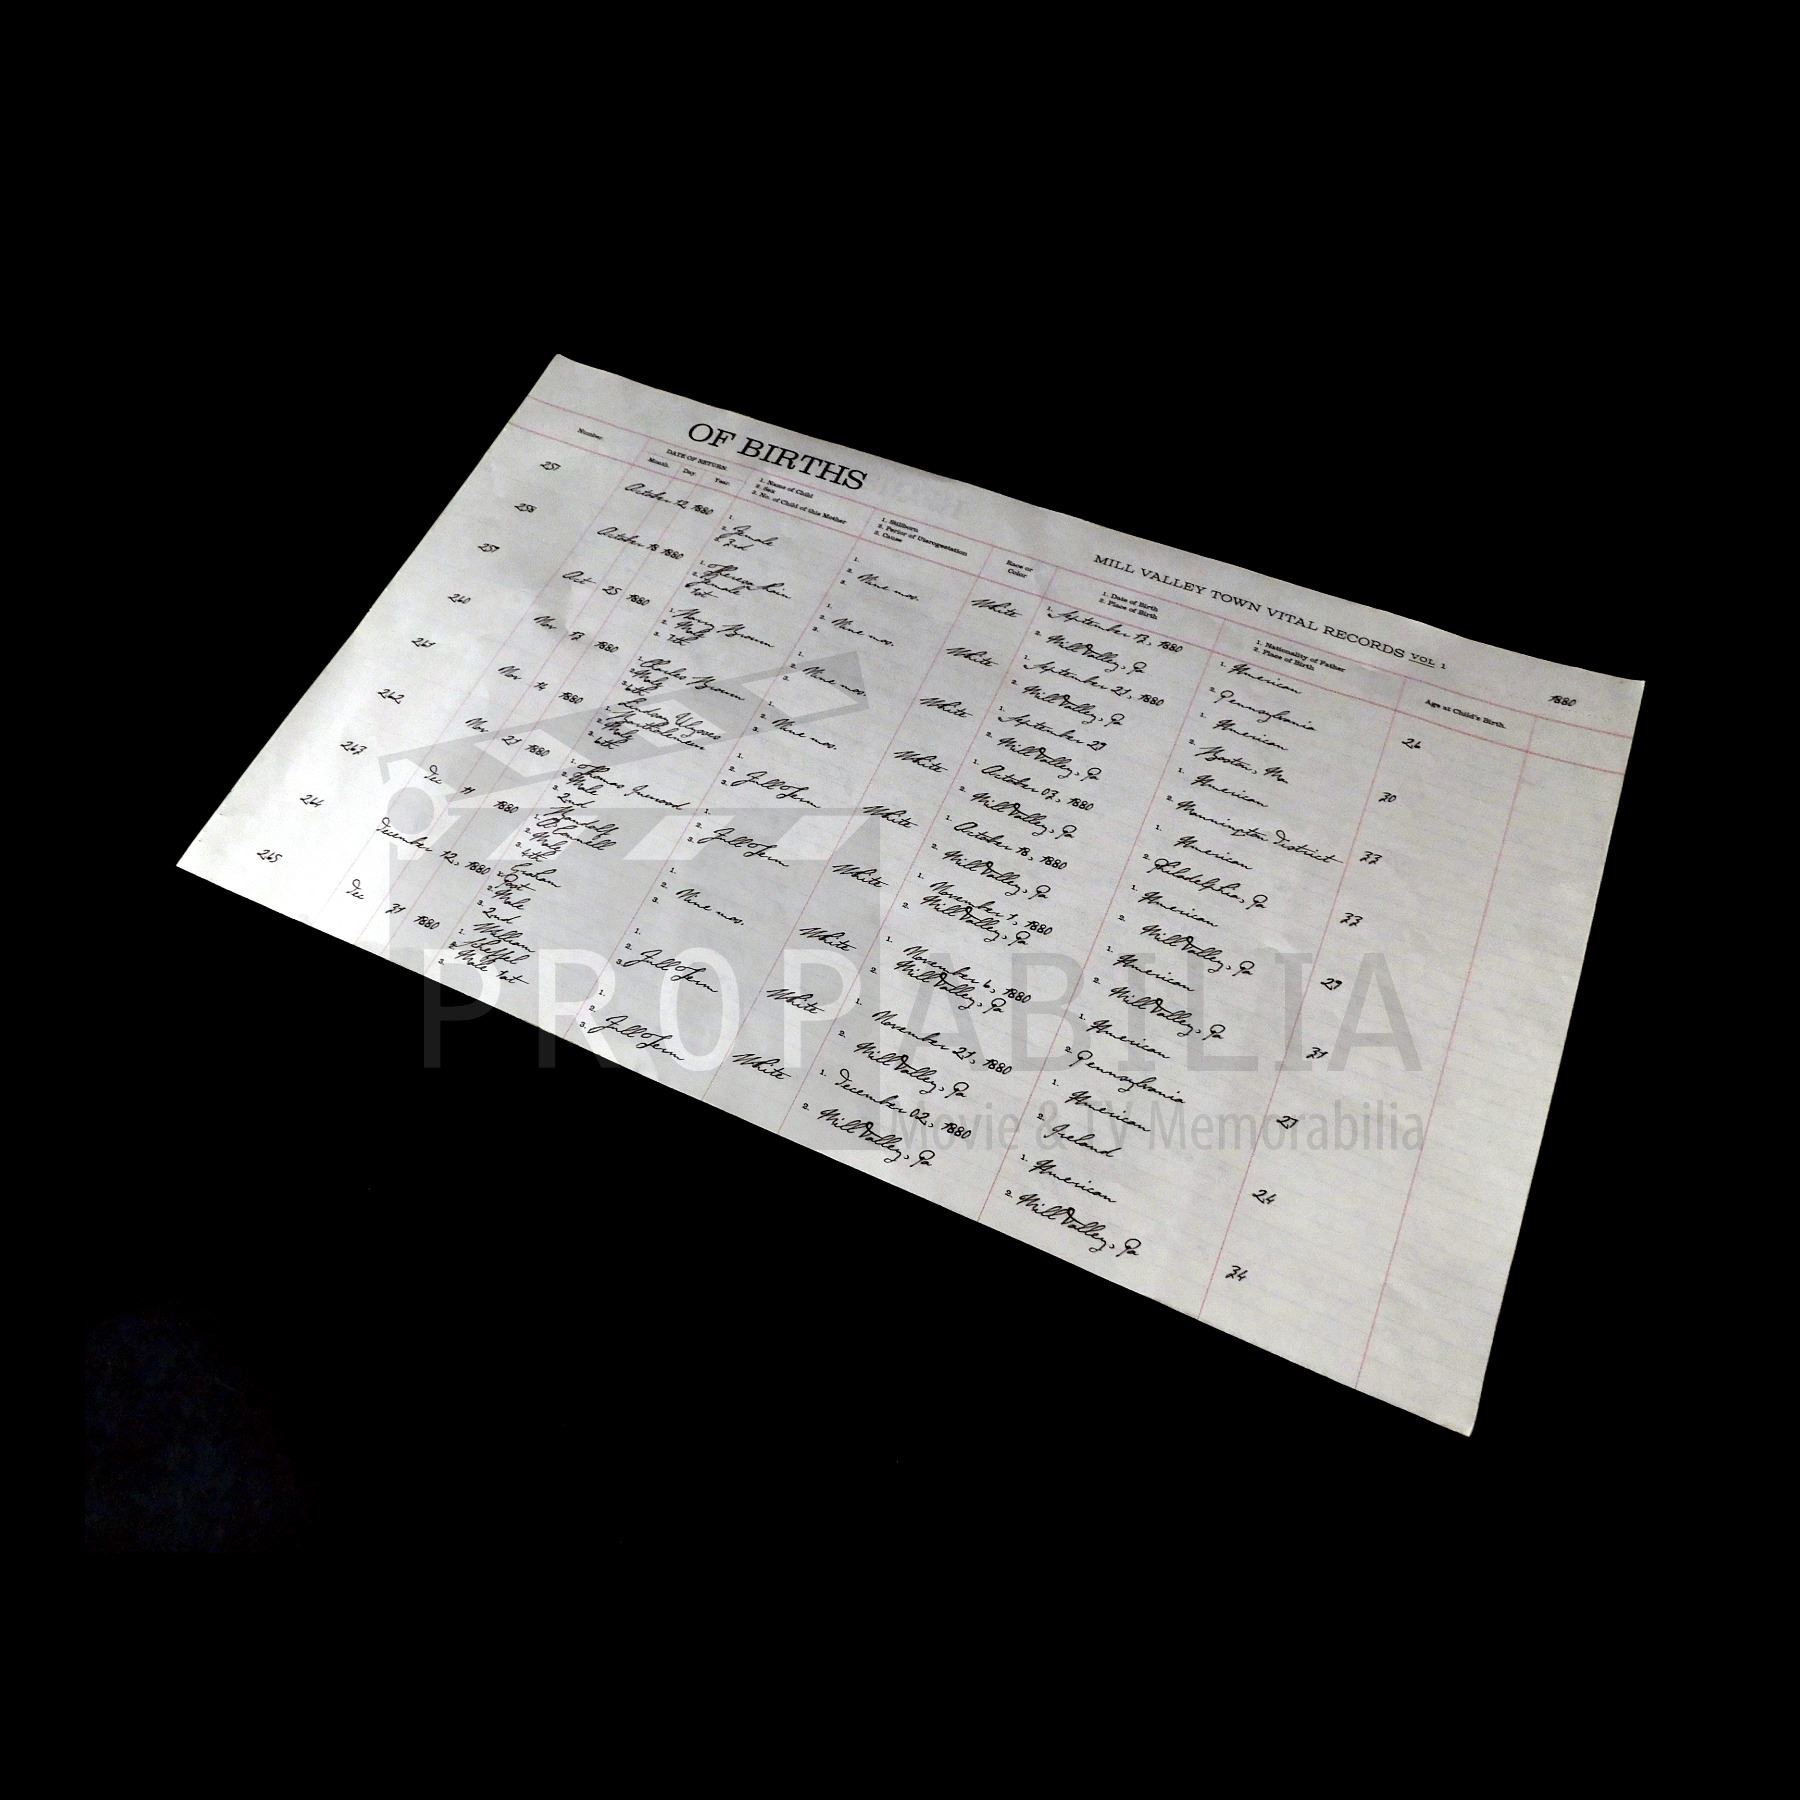 OF BIRTHS
MILL VALLEY TOWN VITAL RECORDS VOL 1
1880
Number.
DATE OF RETURN
Month. Day. Year.
1. Name of Child
2. Sex
3. No. of Child of this Mother
1. Stillborn
2. Period of Uterogestation
3. Cause
Race or
Color
1. Date of Birth
2. Place of Birth
1. Nationality of Father
2. Place of Birth
Age at Child's Birth.
257
October 12, 1880
1.
2. Female
3. 3rd
1.
2. Nine mos.
3.
White
1. September 12, 1880
2. Mill Valley, Pa
1. American
2. Pennsylvania
26
258
October 18 1880
Female
1st
1.
2. Nine mos.
3.
White
1. September 21, 1880
2. Mill Valley, Pa
1. American
2. Boston, Ma
30
Oct 25 1880
1. Henry Brown
2. Male
3. 7th
1.
2. Nine mos.
3.
White
1. September 29
2. Mill Valley, Pa
1. American
2. Mannington District
33
260
Nov 12 1880
1. Charles Brown
2. Male
1.
2. Nine mos.
3.
White
1. October 02, 1880
2. Mill Valley, Pa
1. American
2. Philadelphia, Pa
33
261
Nov 14 1880
Lindsay Ulysses
Male
1.
2. Full Term
3.
White
1. October 18, 1880
2. Mill Valley, Pa
1. American
2. Mill Valley, Pa
29
262
Nov 21 1880
1. Thomas Inwood
2. Male
2nd
1.
2. Full Term
3.
White
1. November 1, 1880
2. Mill Valley, Pa
1. American
2. Mill Valley, Pa
31
263
Dec 11 1880
O'Connell
Male
4th
1.
2. Nine mos.
3.
White
1. November 6, 1880
2. Mill Valley, Pa
1. American
2. Pennsylvania
264
December 12, 1880
Graham
Post
2. Male
3. 2nd
1.
2. Full Term
3.
White
1. November 21, 1880
2. Mill Valley, Pa
1. American
2. Ireland
24
265
Dec 31 1880
1. William
2. Sheffel
3. Male 1st
1.
2. Full Term
3.
White
1. December 02, 1880
2. Mill Valley, Pa
1. American
2. Mill Valley, Pa
34
PROPABILIA
Movie & TV Memorabilia